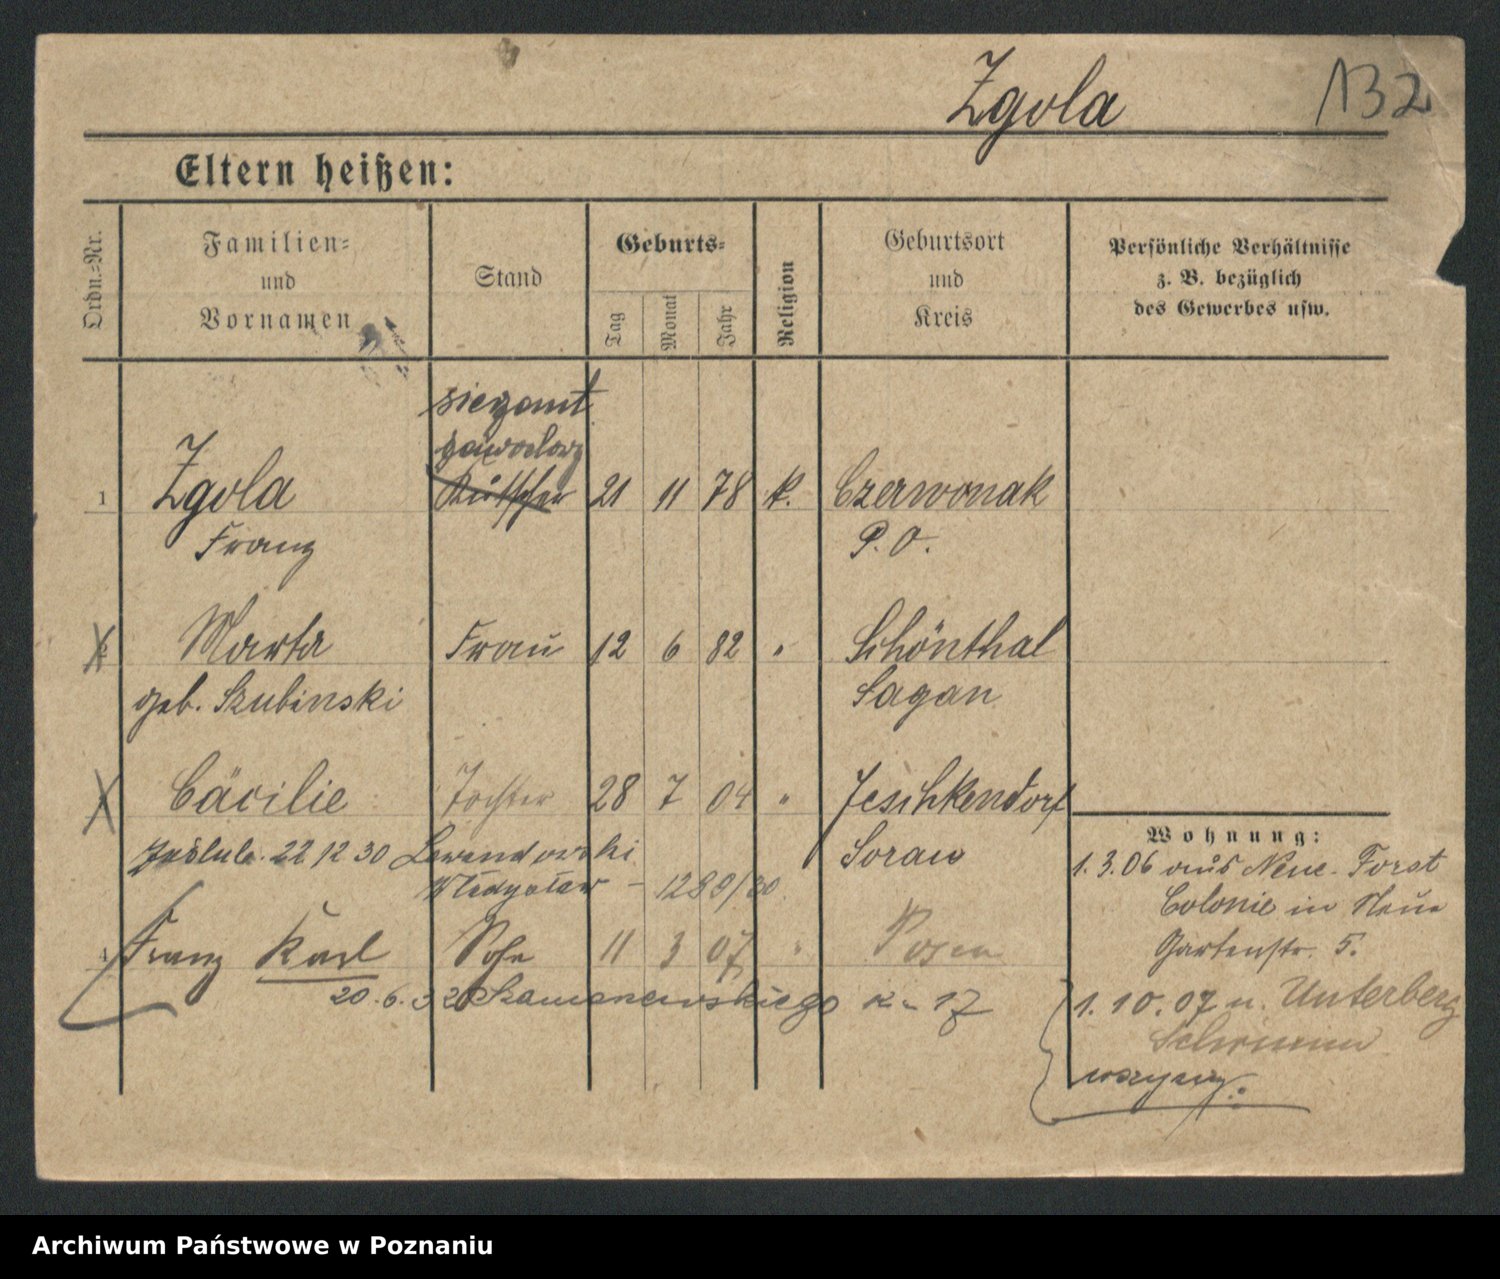 Zgola 132
Eltern heißen:
Ordn.=Nr.
Familien=
und
Vornamen
Stand
Geburts=
Tag
Monat
Jahr
Religion
Geburtsort
und
Kreis
Persönliche Verhältnisse
z. B. bezüglich
des Gewerbes usw.
sierżant
zawodowy
1 Zgola Kutscher 21 11 78 k. Czerwonak
Franz P. O.
Marta Frau 12 6 82 " Schönthal
geb. Szubinski Sagan
Cäcilie Tochter 28 7 04 " Jeschkendorf
Wohnung:
22 12 30 Lewandowski Sorau
1.3.06 aus Neue-Forst
Władysław – 1289/30.
Colonie in Neue
4 Franz Karl Sohn 11 3 07 " Posen
Gartenstr. 5.
20.6.32 Szamarzewskiego 17
1.10.07 n. Unterberg
Schrimm
wszyscy.